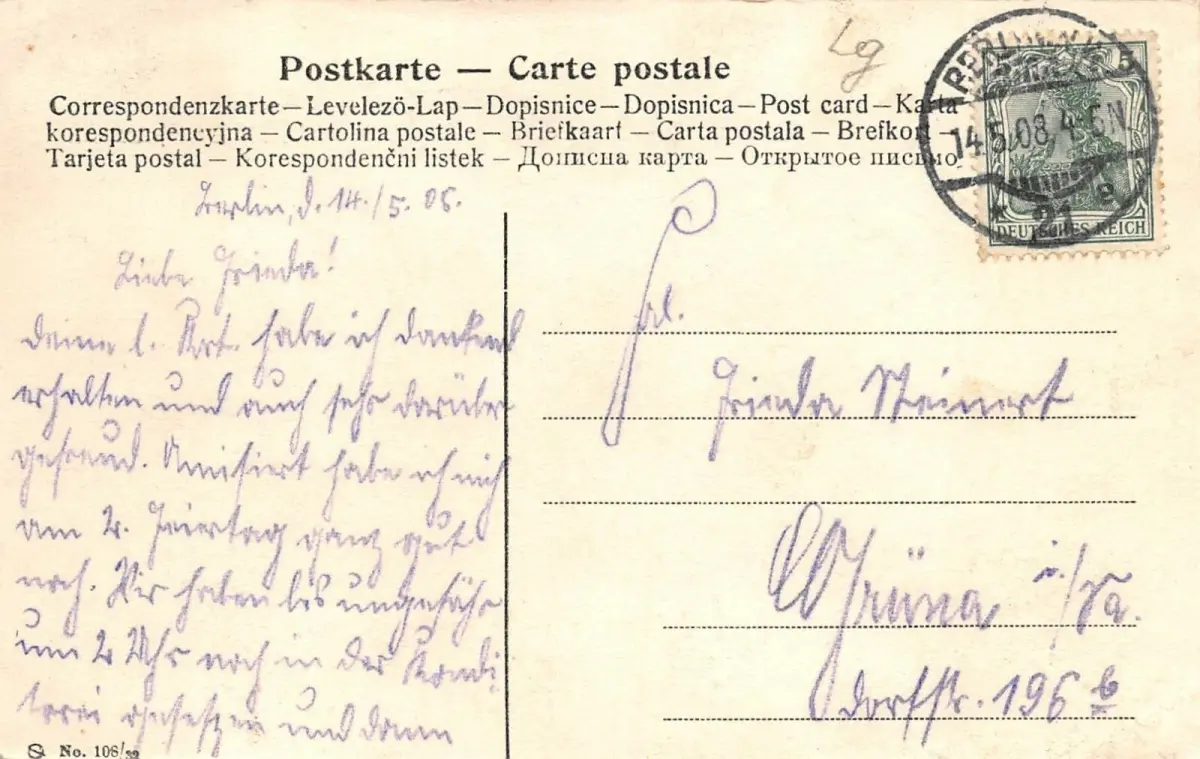 Lg
Postkarte — Carte postale
Correspondenzkarte — Levelezö-Lap — Dopisnice — Dopisnica — Post card — Karta
korespondencyjna — Cartolina postale — Briefkaart — Carta postala — Brefkort —
Tarjeta postal — Korespondenčni listek — Дописна карта — Открытое письмо
14.5.08, 4-5N
* 21 e
5
DEUTSCHES REICH
Berlin, d. 14./5. 08.
Liebe Frieda!
Deine l. Kart. habe ich dankend
erhalten und auch sehr darüber
gefreud. Amisiert habe ich mich
am 2. Feiertag ganz gut
noch. Wir haben bis ungefähr
um 2 Uhr noch in der Kondi-
torei gesessen und dann
Frieda Steinert
Grüna i./Sa.
Dorfstr. 196 b
No. 108/32